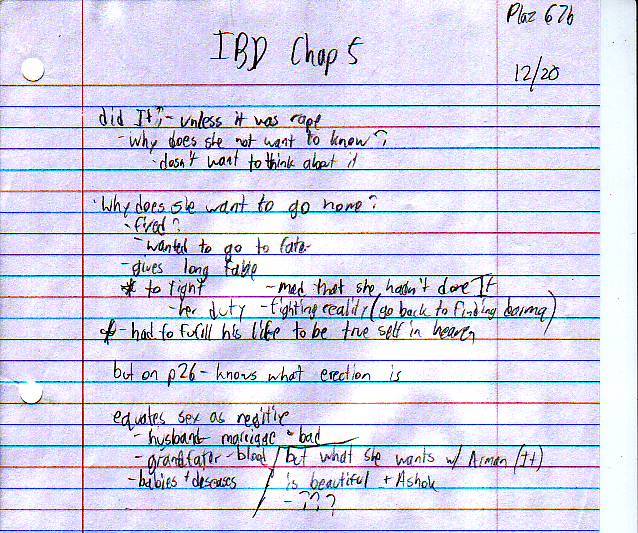 Plaz 676
IBD Chap 5
12/20
did It? - unless it was rape
- why does she not want to know?
- dosn't want to think about it
Why does she want to go home?
- fired?
- wanted to go to fate
- gives long fable
* to fight - mad that she hadn't done It
- her duty - fighting reality (go back to finding
* - had to fufill his life to be true self in heaven
but on p26 - knows what erection is
equates sex as negitie
- husband marriage - bad
- grandfater - blood / but what she wants w/ Arman (It)
- babies + deseases / is beautiful + Ashok
- ???